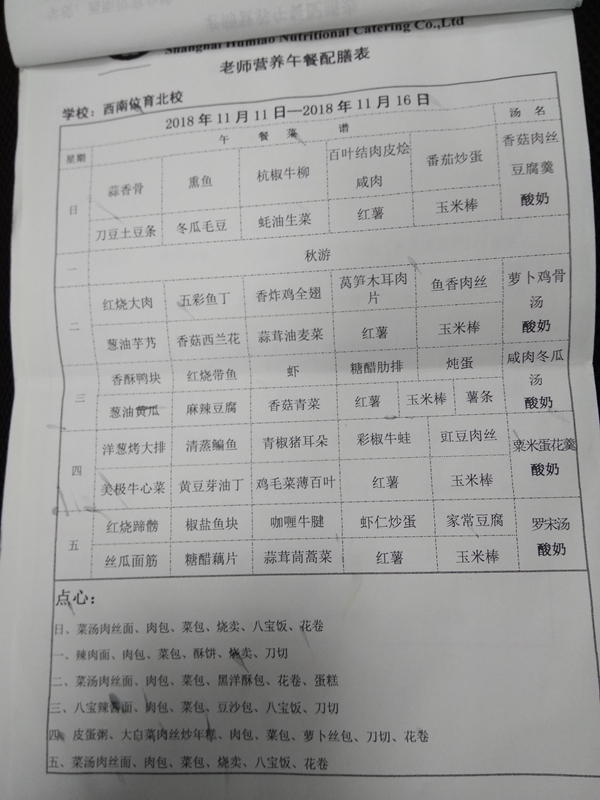 Shanghai Humiao Nutritional Catering Co.,Ltd
老师营养午餐配膳表
学校：西南位育北校
2018 年 11 月 11 日—2018 年 11 月 16 日
星期 午 餐 菜 谱 汤 名
日 蒜香骨 熏鱼 杭椒牛柳 百叶结肉皮烩咸肉 番茄炒蛋 香菇肉丝豆腐羹
刀豆土豆条 冬瓜毛豆 蚝油生菜 红薯 玉米棒 酸奶
一 秋游
二 红烧大肉 五彩鱼丁 香炸鸡全翅 莴笋木耳肉片 鱼香肉丝 萝卜鸡骨汤
葱油芋艿 香菇西兰花 蒜茸油麦菜 红薯 玉米棒 酸奶
三 香酥鸭块 红烧带鱼 虾 糖醋肋排 炖蛋 咸肉冬瓜汤
葱油黄瓜 麻辣豆腐 香菇青菜 红薯 玉米棒 薯条 酸奶
四 洋葱烤大排 清蒸鳊鱼 青椒猪耳朵 彩椒牛蛙 豇豆肉丝 粟米蛋花羹
美极牛心菜 黄豆芽油丁 鸡毛菜薄百叶 红薯 玉米棒 酸奶
五 红烧蹄髈 椒盐鱼块 咖喱牛腱 虾仁炒蛋 家常豆腐 罗宋汤
丝瓜面筋 糖醋藕片 蒜茸茼蒿菜 红薯 玉米棒 酸奶
点心：
日、菜汤肉丝面、肉包、菜包、烧卖、八宝饭、花卷
一、辣肉面、肉包、菜包、酥饼、烧卖、刀切
二、菜汤肉丝面、肉包、菜包、黑洋酥包、花卷、蛋糕
三、八宝辣酱面、肉包、菜包、豆沙包、八宝饭、刀切
四、皮蛋粥、大白菜肉丝炒年糕、肉包、菜包、萝卜丝包、刀切、花卷
五、菜汤肉丝面、肉包、菜包、烧卖、八宝饭、花卷